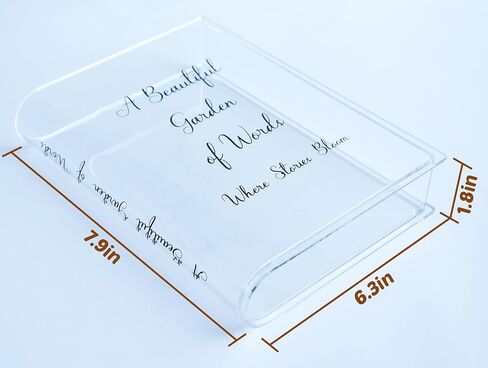 A Beautiful
Garden
of Words
Where Stories Bloom
A Beautiful Garden of Words
7.9in
6.3in
1.8in